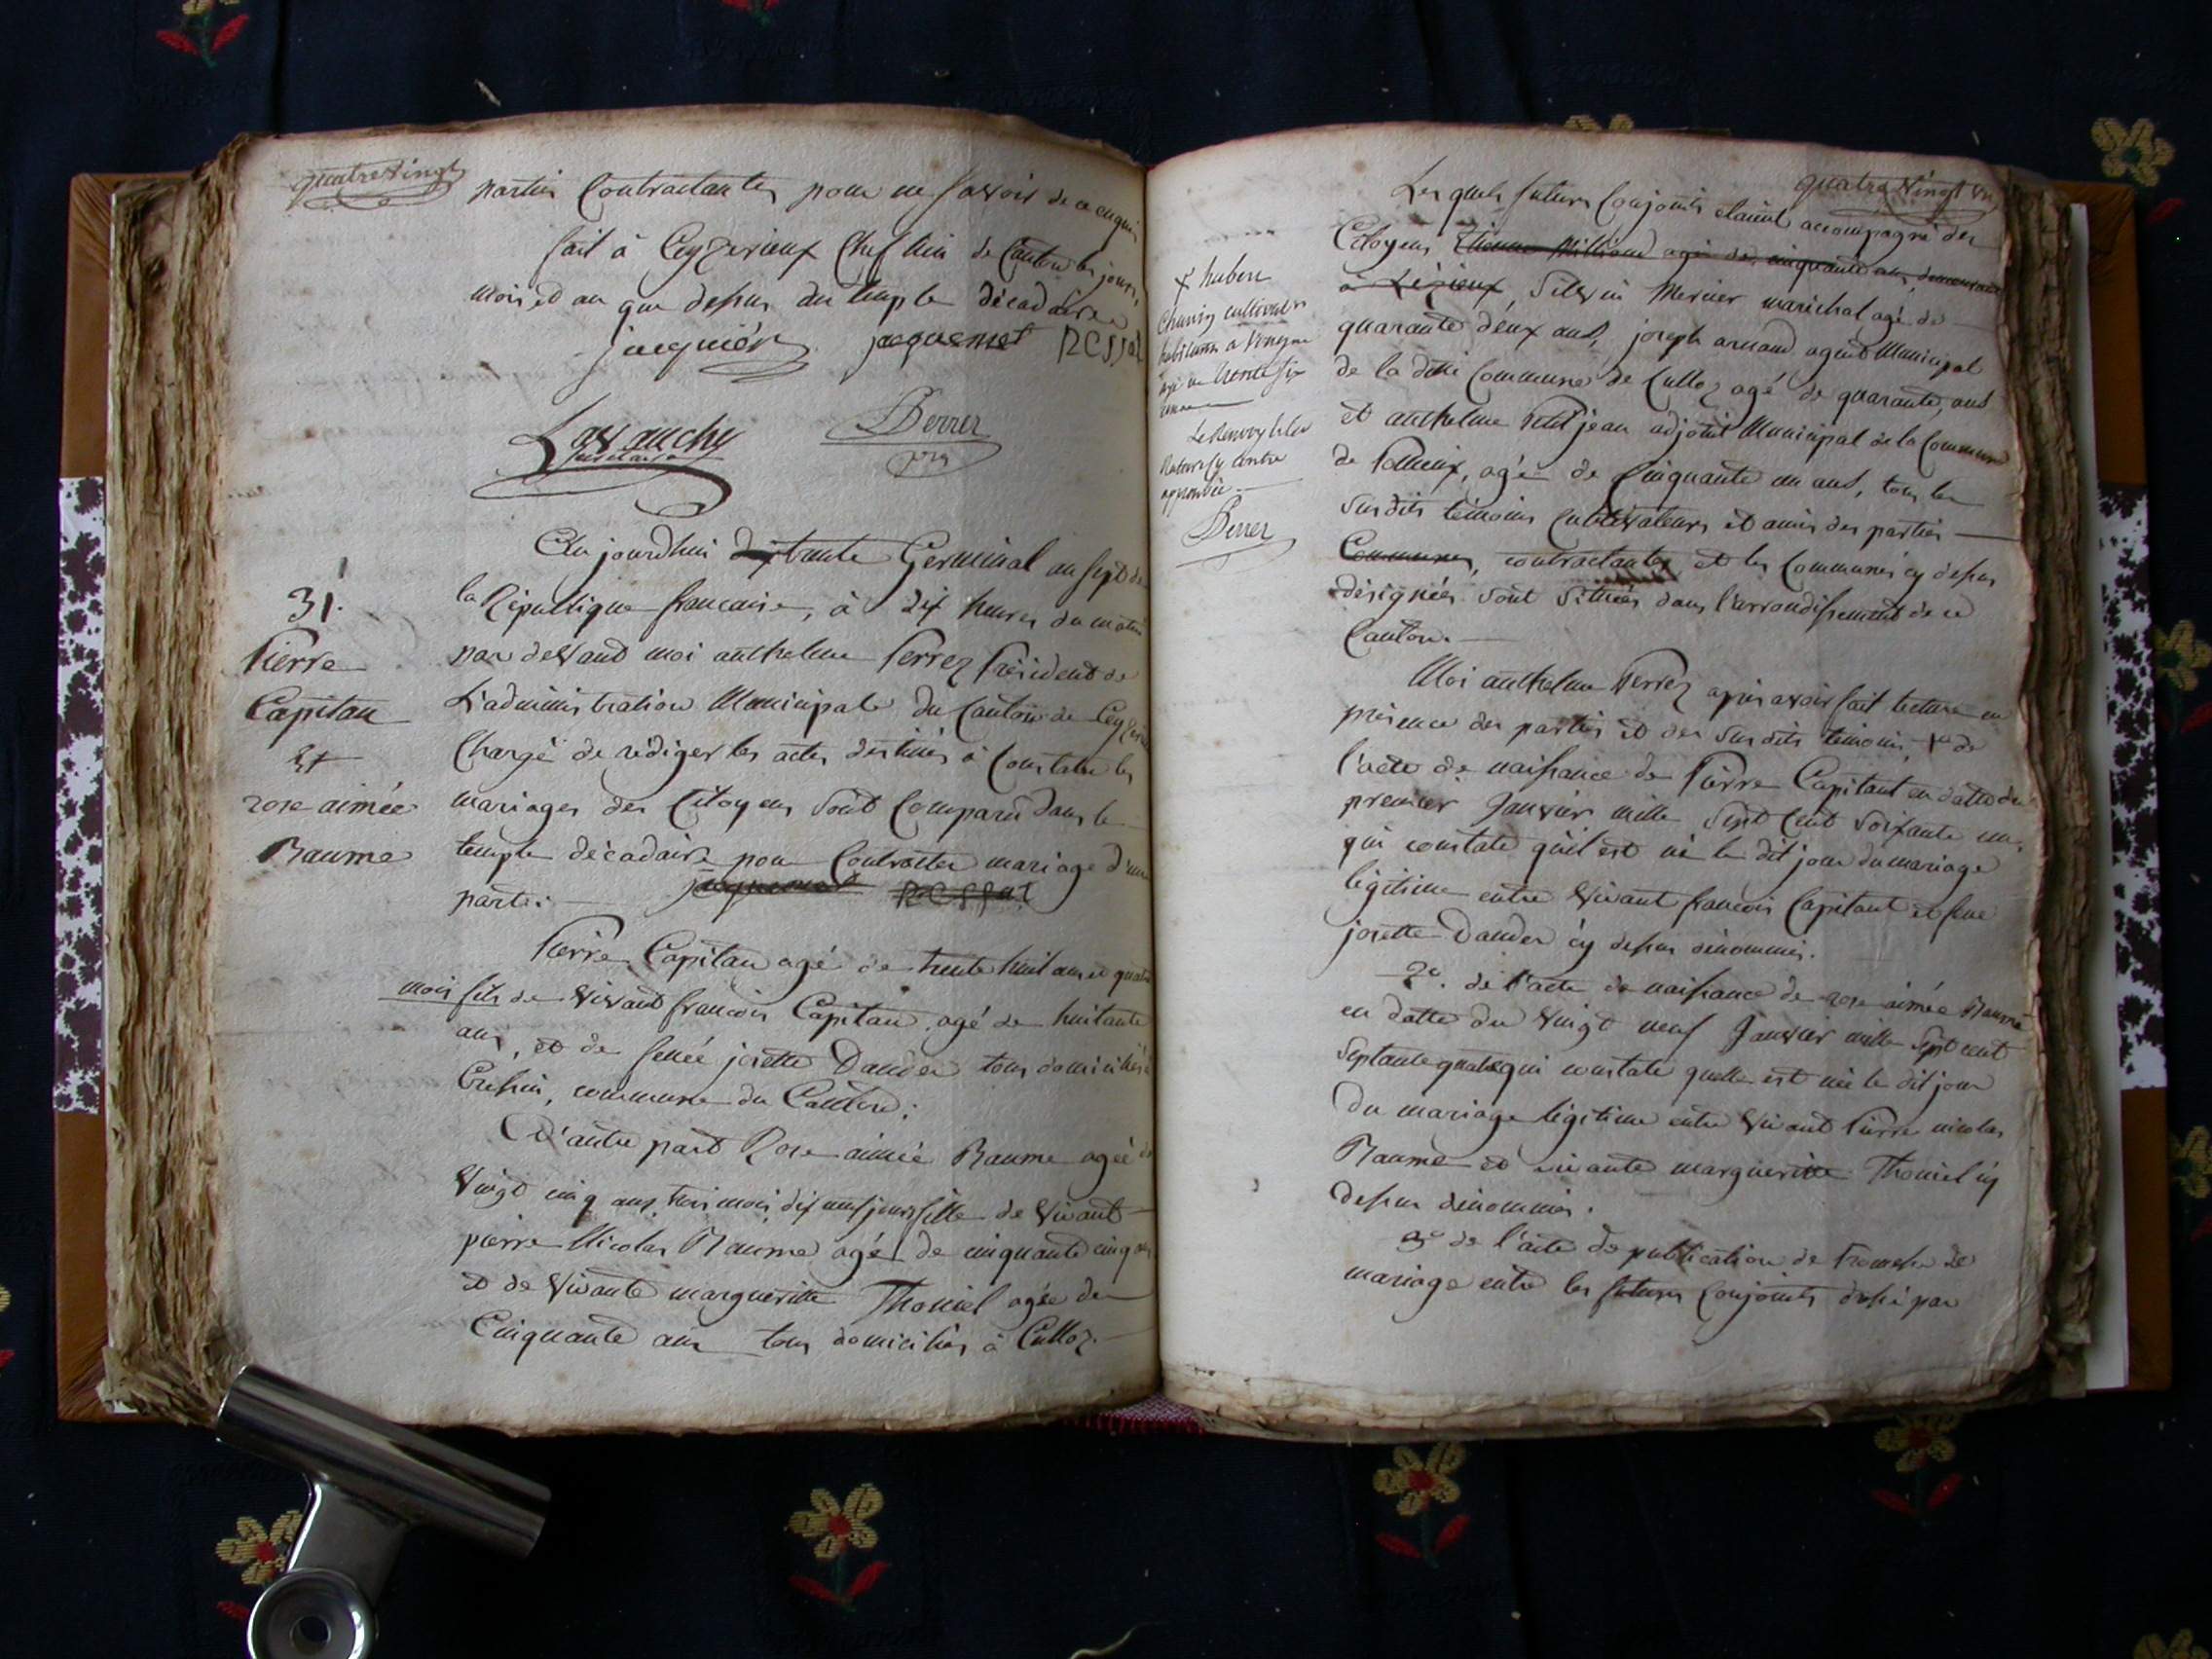 quatre Vingt
parties Contractantes pour ne savoir de ce enquis
fait à Ceyzerieux Chef lieu de Canton les jours,
mois et an que dessus au temple décadaire
jacquiér jacquemet RESSAT
Lavanchy
secretaire
Perrez
Aujourdhui dix trente Germinal an sept de
la République francaise, à dix heures du matin
par devant moi anthelme Perrez Président de
L'administration Municipale du Canton de Ceyzerieux
Chargé de rédiger les actes destinés à Constater les
mariages des Citoyens sont Comparu dans le
temple décadaire pour Contracter mariage d'une
parte: jacquemet RESSAT
31.
Pierre
Capitan
Et
rose aimée
Raume
Pierre Capitan agé de trente huit ans et quatre
mois fils de vivant francois Capitan, agé de huitante
ans, et de feuée josette Dander tous domiciliés à
Cressin, commune du Canton;
D'autre part Rose aimée Raume agée de
Vingt cinq ans, trois mois, dix neuf jours fille de vivant
pierre Nicolas Raume agé de cinquante cinq ans
et de vivante margueritte Thoniel agée de
Cinquante ans tous domiciliés à Culloz.
quatre Vingt un
Les quels futurs Conjoints étaint accompagné des
Citoyens Etienne Milliand agé de cinquante ans, demeurant
à Lézieux, Silvin Mercier maréchal agé de
quarante deux ans, joseph arnaud agent Municipal
de la ditte Commune de Culloz agé de quarante, ans
et anthelme Petit jean adjoint Municipal de la Commune
de Pollieux, agé de Cinquante un ans, tous les
Susdits témoins Cultivateurs et amis des parties
Communes, contractantes, et les Communes cy dessus
désignées sont situées dans l'arrondissement de ce
Canton.
hubert
cultivateur
a
agé de trente six
ans
Le Renvoy
approuvée
Perrez
Moi anthelme Perrez après avoir fait lecture en
présence des parties et des susdits témoins, 1º de
l'acte de naissance de Pierre Capitant en datte du
premier Janvier mille Sept Cent Soixante un,
qui constate qu'il est né le dit jour du mariage
légitime entre Vivant francois Capitant et feue
josette Dander cy dessus dénommés.
2º. de l'acte de naissance de rose aimée Raume
en datte du vingt neuf Janvier mille Sept cent
Septante quatre qui constate quelle est née le dit jour
Du mariage légitime entre Vivant Pierre nicolas
Raume et vivante margueritte Thoniel cy
dessus dénommés.
3º de l'acte de publication de Promesse de
mariage entre les futurs Conjoints dressé par